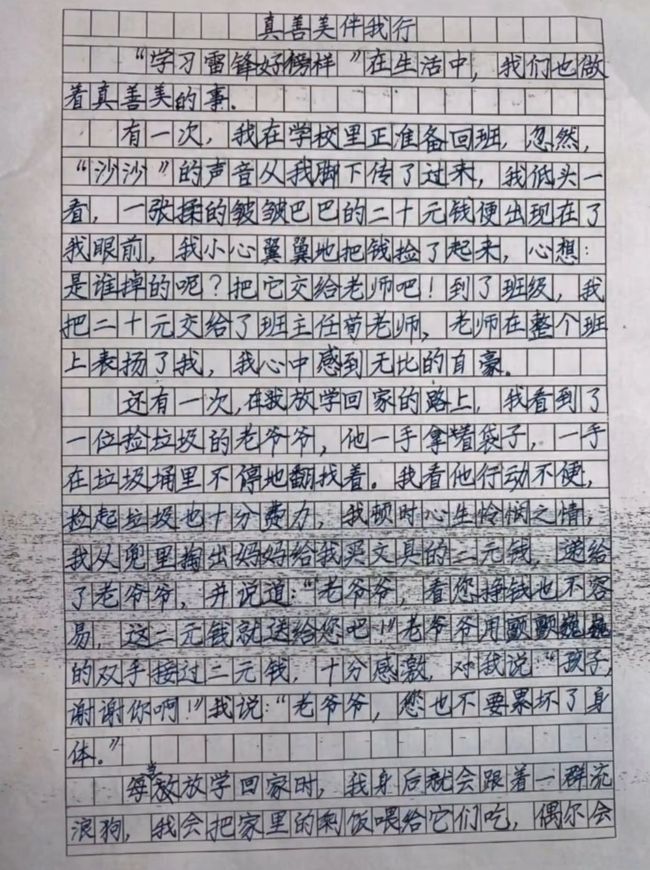 真善美伴我行
“学习雷锋好榜样”在生活中，我们也做
着真善美的事.
有一次，我在学校里正准备回班，忽然，
“沙沙”的声音从我脚下传了过来，我低头一
看，一张揉的皱皱巴巴的二十元钱便出现在了
我眼前，我小心翼翼地把钱捡了起来，心想：
是谁掉的呢？把它交给老师吧！到了班级，我
把二十元交给了班主任荀老师，老师在整个班
上表扬了我，我心中感到无比的自豪。
还有一次，在我放学回家的路上，我看到了
一位捡垃圾的老爷爷，他一手拿着袋子，一手
在垃圾桶里不停地翻找着。我看他行动不便，
捡起垃圾也十分费力，我顿时心生怜悯之情，
我从兜里掏出妈妈给我买文具的二元钱，递给
了老爷爷，并说道：“老爷爷，看您挣钱也不容
易，这二元钱就送给您吧！”老爷爷用颤颤巍巍
的双手接过二元钱，十分感激，对我说“孩子，
谢谢你啊！”我说：“老爷爷，您也不要累坏了身
体。”
每当放学回家时，我身后就会跟着一群流
浪狗，我会把家里的剩饭喂给它们吃，偶尔会